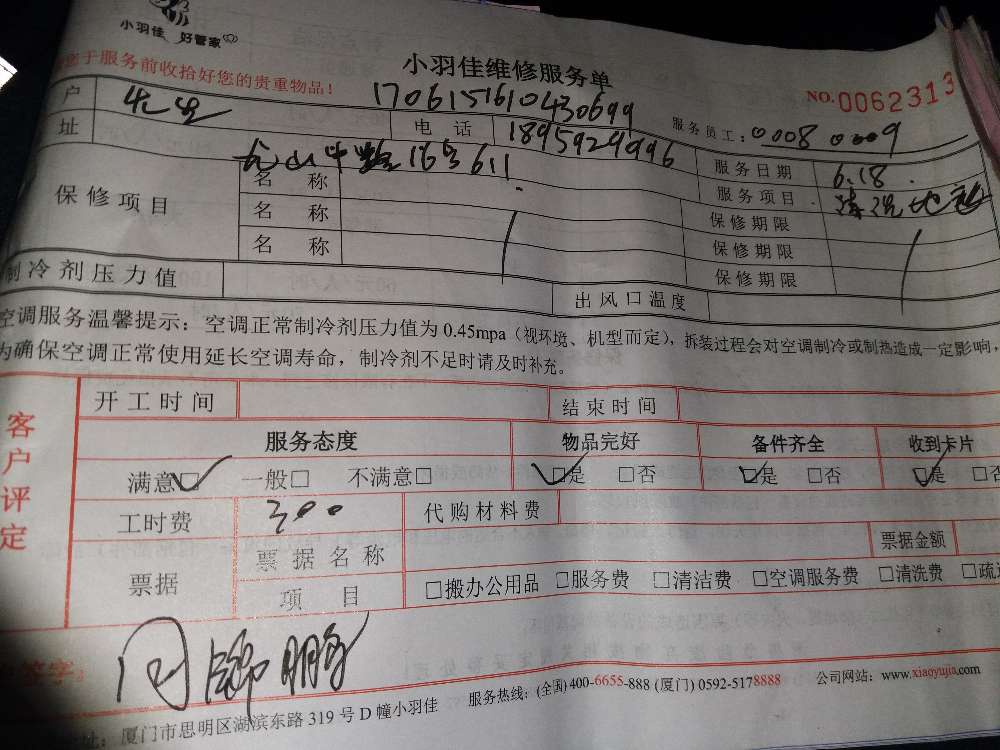 小羽佳 好管家
于服务前收拾好您的贵重物品！
小羽佳维修服务单
NO.0062313
170615161043069９
户
电 话 18959249996
服务员工： 0008 0009
址 16号611
服务日期 6.18.
服务项目 清洗地毯
保修项目
名 称
保修期限
名 称
保修期限
名 称
保修期限
制冷剂压力值
出风口温度
空调服务温馨提示：空调正常制冷剂压力值为 0.45mpa（视环境、机型而定），拆装过程会对空调制冷或制热造成一定影响，
为确保空调正常使用延长空调寿命，制冷剂不足时请及时补充。
客户评定
开工时间
结束时间
服务态度 物品完好 备件齐全 收到卡片
满意☑ 一般□ 不满意□ ☑是 □否 ☑是 □否 ☑是 □否
工时费 300 代购材料费
票据 票据名称 票据金额
项 目 □搬办公用品 □服务费 □清洁费 □空调服务费 □清洗费 □疏
签字：
厦门市思明区湖滨东路 319 号 D 幢小羽佳 服务热线：(全国) 400-6655-888 (厦门) 0592-5178888 公司网站：www.xiaoyujia.com